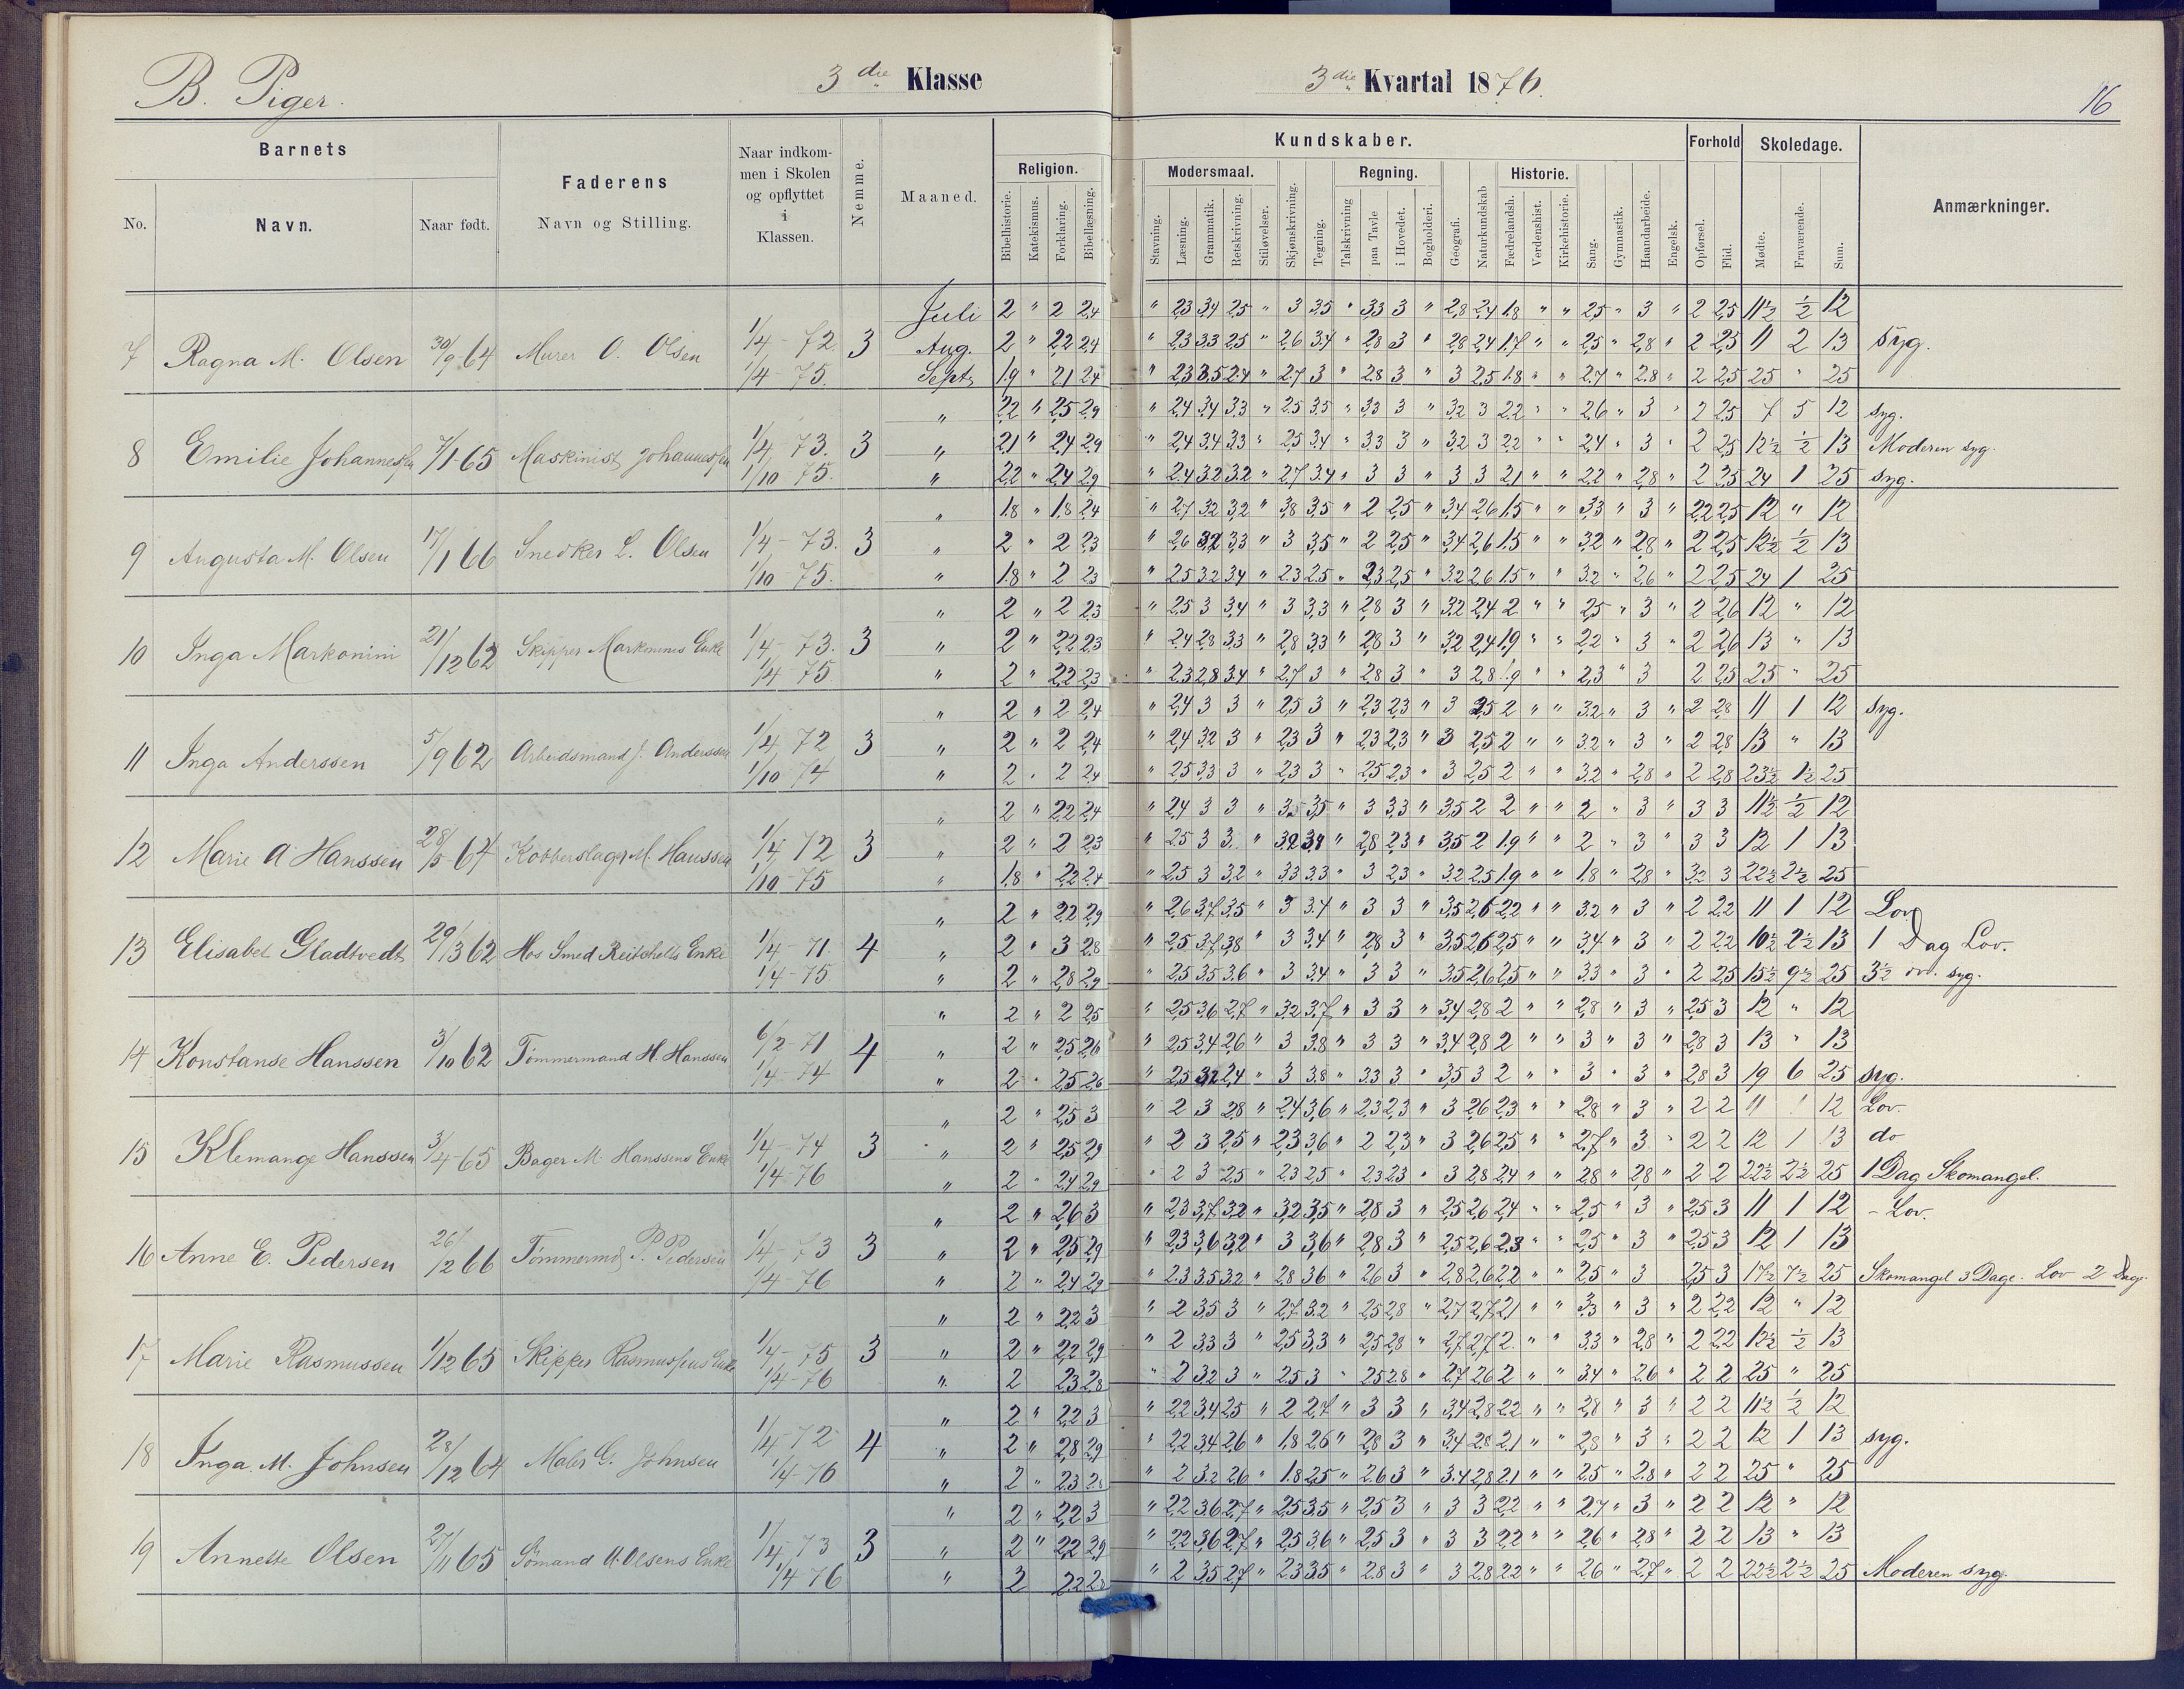 B. Piger.
3die Klasse
3die Kvartal 1876.
16
Barnets
Faderens
Naar indkommen i Skolen og opflyttet i Klassen.
Nemme.
Maaned.
Religion.
Kundskaber.
Forhold
Skoledage.
Anmærkninger.
Modersmaal.
Regning.
Historie.
No.
Navn.
Naar født.
Navn og Stilling.
Bibelhistorie.
Katekismus.
Forklaring.
Bibellæsning.
Stavning.
Læsning.
Grammatik.
Retskrivning.
Stiløvelser.
Skjønskrivning.
Tegning.
Talskrivning
paa Tavle
i Hovedet.
Bogholderi.
Geografi.
Naturkundskab
Fædrelandsh.
Verdenshist.
Kirkehistorie.
Sang.
Gymnastik.
Haandarbeide.
Engelsk.
Opførsel.
Flid.
Mødte.
Fraværende.
Sum.
Juli 2 " 2 2,4 " 2,3 3,4 2,5 " 3 3,5 " 3,3 3 " 2,8 2,4 1,8 " " 2,5 " 3 " 2 2,5 11½ ½ 12
7 Ragna M. Olsen 30/9 64 Murer O. Olsen 1/4 - 72. 1/4 - 75. 3 Aug. 2 " 2,2 2,4 " 2,3 3,3 2,5 " 2,6 3,4 " 2,8 3 " 2,8 2,4 1,7 " " 2,5 " 2,8 " 2 2,5 11 2 13 syg.
Septr 1,9 " 2,1 2,4 " 2,3 3,5 2,4 " 2,7 3 " 2,8 3 " 3 2,5 1,8 " " 2,7 " 2,8 " 2 2,5 25 " 25
" 2,2 " 2,5 2,9 " 2,4 3,4 3,3 " 2,5 3,5 " 3,3 3 " 3,2 3 2,2 " " 2,6 " 3 " 2 2,5 7 5 12 syg.
8 Emilie Johannessen 7/1 65 Maskinist Johannessen 1/4 - 73. 1/10 75. 3 " 2,1 " 2,4 2,9 " 2,4 3,4 3,3 " 2,5 3,4 " 3,3 3 " 3,2 3 2,2 " " 2,4 " 3 " 2 2,5 12½ ½ 13 Moderen syg.
" 2,2 " 2,4 2,9 " 2,4 3,2 3,2 " 2,7 3,4 " 3 3 " 3 3 2,1 " " 2,2 " 2,8 " 2 2,5 24 1 25 syg.
" 1,8 " 1,8 2,4 " 2,7 3,2 3,2 " 3,8 3,5 " 2 2,5 " 3,4 2,6 1,5 " " 3,3 " 3 " 2,2 2,5 12 " 12
9 Augusta M. Olsen 17/1 66 Snedker L. Olsen 1/4 - 73. 1/10 75. 3 " 2 " 2 2,3 " 2,6 3,2 3,3 " 3 3,5 " 2 2,5 " 3,4 2,6 1,5 " " 3,2 " 2,8 " 2 2,5 12½ ½ 13
" 1,8 " 2 2,3 " 2,5 3,2 3,4 " 2,3 2,5 " 2,3 2,5 " 3,2 2,6 1,5 " " 3,2 " 2,6 " 2 2,5 24 1 25
" 2 " 2 2,3 " 2,5 3 3,4 " 3 3,3 " 2,8 3 " 3,2 2,4 2 " " 2,5 " 3 " 2 2,6 12 " 12
10 Inga Markonini 21/12 62 Skipper Enke 1/4 - 73. 1/4 75 3 " 2 " 2,2 2,3 " 2,4 2,8 3,3 " 2,8 3,3 " 2,8 3 " 3,2 2,4 1,9 " " 2,2 " 3 " 2 2,6 13 " 13
" 2 " 2,2 2,3 " 2,3 2,8 3,4 " 2,7 3 " 2,8 3 " 3 2,8 1,9 " " 2,3 " 3 2 2,5 25 " 25
" 2 " 2 2,4 " 2,4 3 3 " 2,5 3 " 2,3 2,3 " 3 2,5 2 " " 3,2 " 3 " 2 2,8 11 1 12 syg.
11 Inga Anderssen 5/9 62 Arbeidsmand J. Anderssen 1/4 72 1/10 74 3 " 2 " 2 2,4 " 2,4 3,2 3 " 2,3 3 " 2,3 2,3 " 3 2,5 2 " " 3,2 " 3 " 2 2,8 13 " 13
" 2 " 2 2,4 " 2,5 3,3 3 " 2,3 3 " 2,5 2,3 " 3 2,5 2 " " 3,2 " 2,8 " 2 2,8 23½ 1½ 25
" 2 " 2,2 2,4 " 2,4 3 3 " 3,5 3,5 " 3 3,3 " 3,5 2 2 " " 2 " 3 " 3 3 11½ ½ 12
12 Marie A Hanssen 28/5 64 Kobberslager M. Hanssen 1/4 72 1/10 75 3 " 2 " 2 2,3 " 2,5 3 3 " 3,2 3,4 " 2,8 2,3 " 3,5 2 1,9 " " 2 " 3 " 3 3 12 1 13
" 1,8 " 2,2 2,4 " 2,5 3 3,2 " 3,3 3,3 " 3 2,3 " 3,2 2,5 1,9 " " 1,8 " 2,8 " 3,2 3 22½ 2½ 25
" 2 " 2,2 2,9 " 2,6 3,7 3,5 " 3 3,4 " 3 3 " 3,5 2,6 2,2 " " 3,2 " 3 " 2 2,2 11 1 12 Lov
13 Elisabet Gladtvedt 29/3 62 Hos Smed Enke 1/4 - 71. 1/4 - 75. 4 " 2 " 3 2,8 " 2,5 3,7 3,8 " 3 3,4 " 2,8 3 " 3,5 2,6 2,5 " " 3,4 " 3 " 2 2,2 10½ 2½ 13 1 Dag Lov.
" 2 " 2,8 2,9 " 2,5 3,5 3,6 " 3 3,4 " 3 3 " 3,5 2,6 2,5 " " 3,3 " 3 " 2 2,5 15½ 9½ 25 3½ syg.
" 2 " 2 2,5 " 2,5 3,6 2,7 " 3,2 3,7 " 3 3 " 3,4 2,8 2 " " 2,8 " 3 " 2,5 3 12 " 12
14 Konstanse Hanssen 3/10 62 Tømmermand H. Hanssen 6/2 - 71 1/4 - 74 4 " 2 " 2,5 2,6 " 2,5 3,4 2,6 " 3 3,8 " 3 3 " 3,4 2,8 2 " " 3 " 3 " 2,8 3 13 " 13
" 2 " 2,5 2,6 " 2,5 3,2 2,4 " 3 3,8 " 3,3 3 " 3,5 3 2 " " 3 " 3 " 2,8 3 19 6 25 syg.
" 2 " 2,5 3 " 2 3 2,8 " 2,4 3,6 " 2,3 2,3 " 3 2,6 2,3 " " 2,8 " 3 " 2 2 11 1 12 Lov.
15 Klemange Hanssen 3/4 65 Bager M. Hanssens Enke 1/4 - 74 1/4 - 76 3 " 2 " 2,5 2,9 " 2 3 2,5 " 2,3 3,6 " 2 2,3 " 3 2,6 2,5 " " 2,7 " 3 " 2 2 12 1 13 do
" 2 " 2,4 2,9 " 2 3 2,5 " 2,3 2,5 " 2,3 2,3 " 3 2,8 2,4 " " 2,8 " 2,8 " 2 2 22½ 2½ 25 1 Dag Skomangel.
" 2 " 2,6 3 " 2,3 3,7 3,2 " 3,2 3,5 " 2,8 3 " 2,5 2,6 2,4 " " 2,5 " 3 " 2,5 3 11 1 12 - Lov.
16 Anne E. Pedersen 26/2 66 Tømmermd P. Pedersen 1/4 - 73 1/4 - 76 3 " 2 " 2,5 2,9 " 2,3 3,6 3,2 " 3 3,6 " 2,8 3 " 2,5 2,6 2,3 " " 2,5 " 3 " 2,5 3 12 1 13
" 2 " 2,4 2,9 " 2,3 3,5 3,2 " 2,8 3,6 " 2,6 3 " 2,8 2,6 2,2 " " 2,5 " 3 2,5 3 17½ 7½ 25 Skomangel 3 Dage. Lov 2 Dage.
" 2 " 2,2 3 " 2 3,5 3 " 2,7 3,2 " 2,5 2,8 " 2,7 2,7 2,1 " " 3,3 " 3 " 2 2,2 12 " 12
17 Marie Rasmussen 1/12 65 Skipper Rasmussens Enke 1/4 - 75 1/4 - 76 3 " 2 " 2,2 2,9 " 2 3,3 3 " 2,5 3,3 " 2,5 2,8 " 2,7 2,7 2 " " 3,3 " 2,8 " 2 2,2 12½ ½ 13
" 2 2,3 2,8 " 2 3,2 3 " 2,5 3 " 2,5 2,8 " 2,7 2,6 2 " " 3,4 " 2,6 " 2 2 25 " 25
" 2 " 2,2 3 " 2,2 3,4 2,5 " 2 2,7 " 3 3 " 3,4 2,8 2,2 " " 2,8 " 3 " 2 2 11½ ½ 12
18 Inga M. Johnsen 28/12 64 Maler G. Johnsen 1/4 - 72 1/4 - 76 4 " 2 " 2,8 2,9 " 2,2 3,4 2,6 " 1,8 2,6 " 2,8 3 " 3,4 2,8 2,1 " " 2,8 " 3 " 2 2 12 1 13 syg.
" 2 " 2,3 2,8 " 2 3,2 2,6 " 1,8 2,5 " 2,6 3 " 3,4 2,8 2,1 " " 2,5 " 2,8 " 2 2 25 " 25
" 2 " 2,2 3 " 2,2 3,6 2,7 " 2,5 3,5 " 2,5 3 " 3 3 2,2 " " 2,7 " 3 " 2 2 12 " 12
19 Annette Olsen 27/11 65 Sømand Olsens Enke 1/4 73 1/4 76 3 " 2 " 2,2 2,9 " 2,2 3,6 2,7 " 2,5 3,6 " 2,5 3 " 3 3 2,2 " " 2,6 " 2,8 " 2 2 13 " 13
" 2 2,2 2,8 " 2 3,5 2,7 " 2,3 3,5 " 2,8 3 " 3 2,8 2,2 " " 2,6 " 2,7 " 2 2 22½ 2½ 25 Moderen syg.